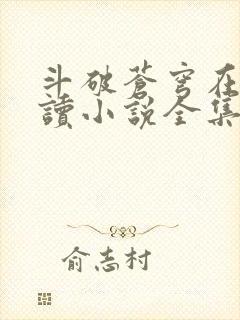 斗破蒼穹在
讀小説全集
俞志村